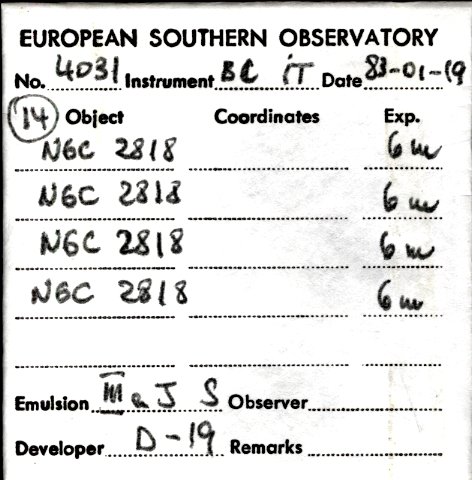 EUROPEAN SOUTHERN OBSERVATORY
No. 4031 Instrument BC IT Date 83-01-19
14 Object Coordinates Exp.
NGC 2818 6 m
NGC 2818 6 m
NGC 2818 6 m
NGC 2818 6 m
Emulsion III a J S Observer
Developer D-19 Remarks